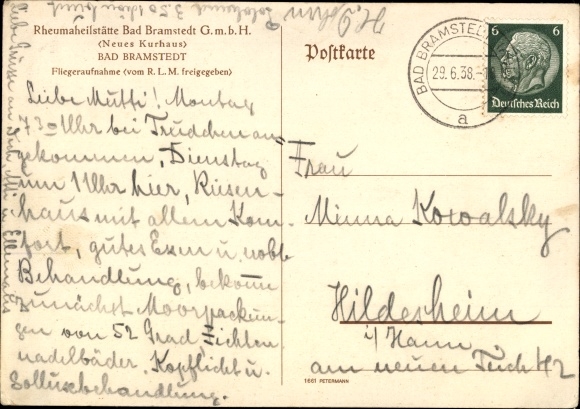 Rheumaheilstätte Bad Bramstedt G.m.b.H.
(Neues Kurhaus)
BAD BRAMSTEDT
Fliegeraufnahme (vom R. L. M. freigegeben)
Liebe Mutti! Montag
7 30 Uhr bei Trudchen an
gekommen, Dienstag
um 11 Uhr hier, Riesen-
haus mit allem Kom-
fort, gutes Essen u. noble
Behandlung, bekomme
zunächst Moorpackun-
gen von 52 Grad, Fichten
nadelbäder, Kopflicht u.
Solluxbehandlung.
Postkarte
BAD BRAMSTEDT
29.6.38.
a
6 6
Deutsches Reich
Frau
Minna Kowalsky
Hildesheim
i/Hann
am neuen Teich 42
1661 PETERMANN